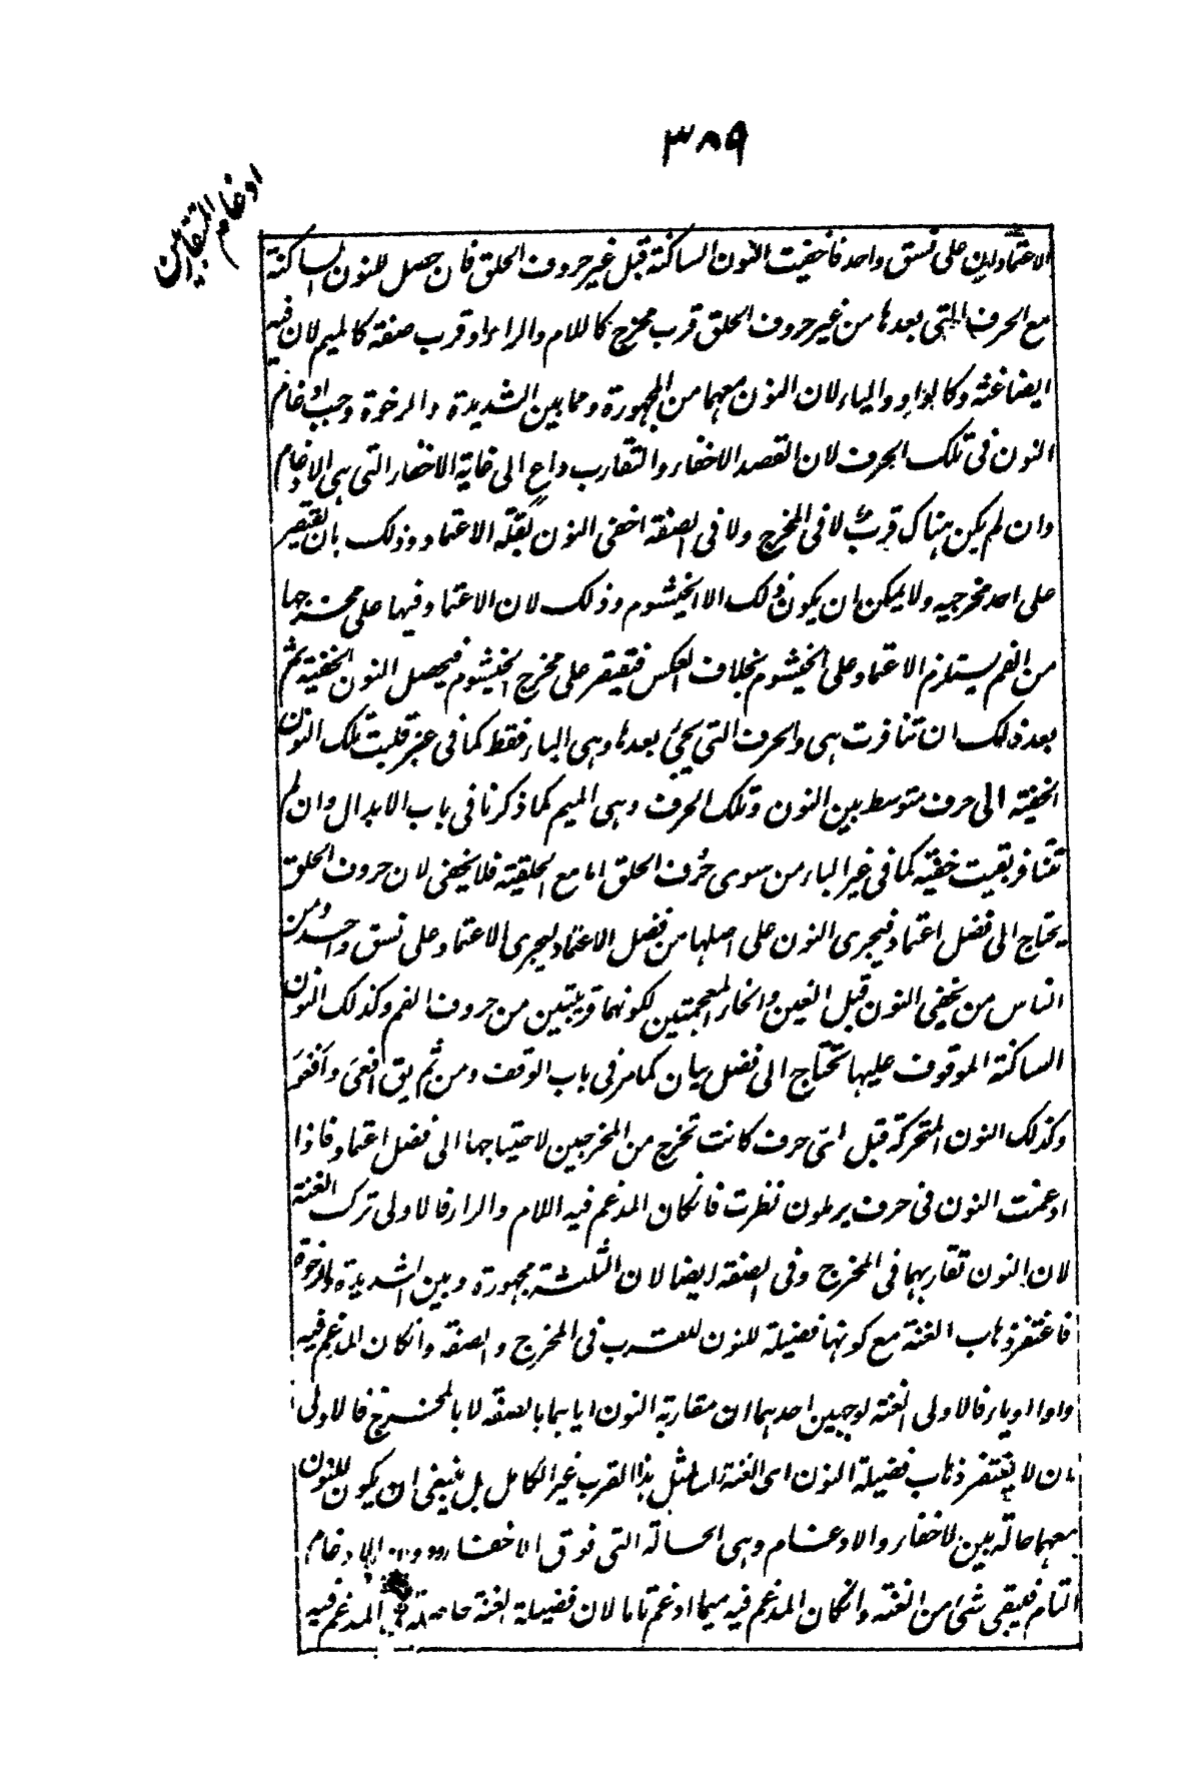 ٣٨٩
ادغام المتقاربين
الاعتمادين على نسق واحد فاخفيت النون الساكنة قبل غير حروف الحلق فان حصل للنون الساكنة
مع الحرف التى بعدها من غير حروف الحلق قرب مخرج كاللام والراء او قرب صفة كالميم لان فيه
ايضا غنة وكالواو والياء لان النون معهما من المجهورة وما بين الشديدة والرخوة وجب ادغام
النون فى تلك الحرف لان القصد الاخفاء والتقارب داعٍ الى غاية الاخفاء التى هى الادغام
وان لم يكن هناك قربٌ لا فى المخرج ولا فى الصفة اخفى النون بقلة الاعتماد وذلك بان يقتصر
على احد مخرجيه ولا يمكن ان يكون ذلك الا الخيشوم وذلك لان الاعتماد فيها على مخرجها
من الفم يستلزم الاعتماد على الخيشوم بخلاف العكس فيقتصر على مخرج الخيشوم فيحصل النون الخفية ثم
بعد ذلك ان تنافرت هى والحرف التى يجئ بعدها وهى الباء فقط كما فى عنبر قلبت تلك النون
الخفية الى حرف متوسط بين النون وتلك الحرف وهى الميم كما ذكرنا فى باب الابدال وان لم
تتنافر بقيت خفية كما فى غير الباء من سوى حُرف الحلق اما مع الحلقية فلا يخفى لان حروف الحلق
يحتاج الى فضل اعتماد فيجرى النون على اصلها من فضل الاعتماد ليجرى الاعتماد على نسق واحد ومن
الناس من يخفى النون قبل الغين والخاء المعجمتين لكونهما قريبتين من حروف الفم وكذلك النون
الساكنة الموقوف عليها تحتاج الى فضل بيان كما مر فى باب الوقف ومن ثم يق افعى وافعو
وكذلك النون المتحركة قبل اىّ حرف كانت تخرج من المخرجين لاحتياجها الى فضل اعتماد فاذا
ادغمت النون فى حرف يرملون نظرت فانكان المدغم فيه اللام والراء فالاولى ترك الغنة
لان النون تقاربهما فى المخرج وفى الصفة ايضا لان الثلثة مجهورة وبين الشديدة والرخوة
فاغتفر ذهاب الغنة مع كونها فضيلة للنون للقرب فى المخرج والصفة وانكان المدغم فيه
واوا او ياء فالاولى الغنة لوجهين احدهما ان مقاربة النون اياهما بالصفة لا بالمخرج فالاولى
ان لا يغتفر ذهاب فضيلة النون اى الغنة اسا لمثل هذا القرب غير الكامل بل ينبغى ان يكون للنون
معهما حالة بين الاخفاء والادغام وهى الحالة التى فوق الاخفاء ودون الادغام
التام فيبقى شئ من الغنة وانكان المدغم فيه ميما ادغم تاما لان فضيلة الغنة حاصلة فى المدغم فيه